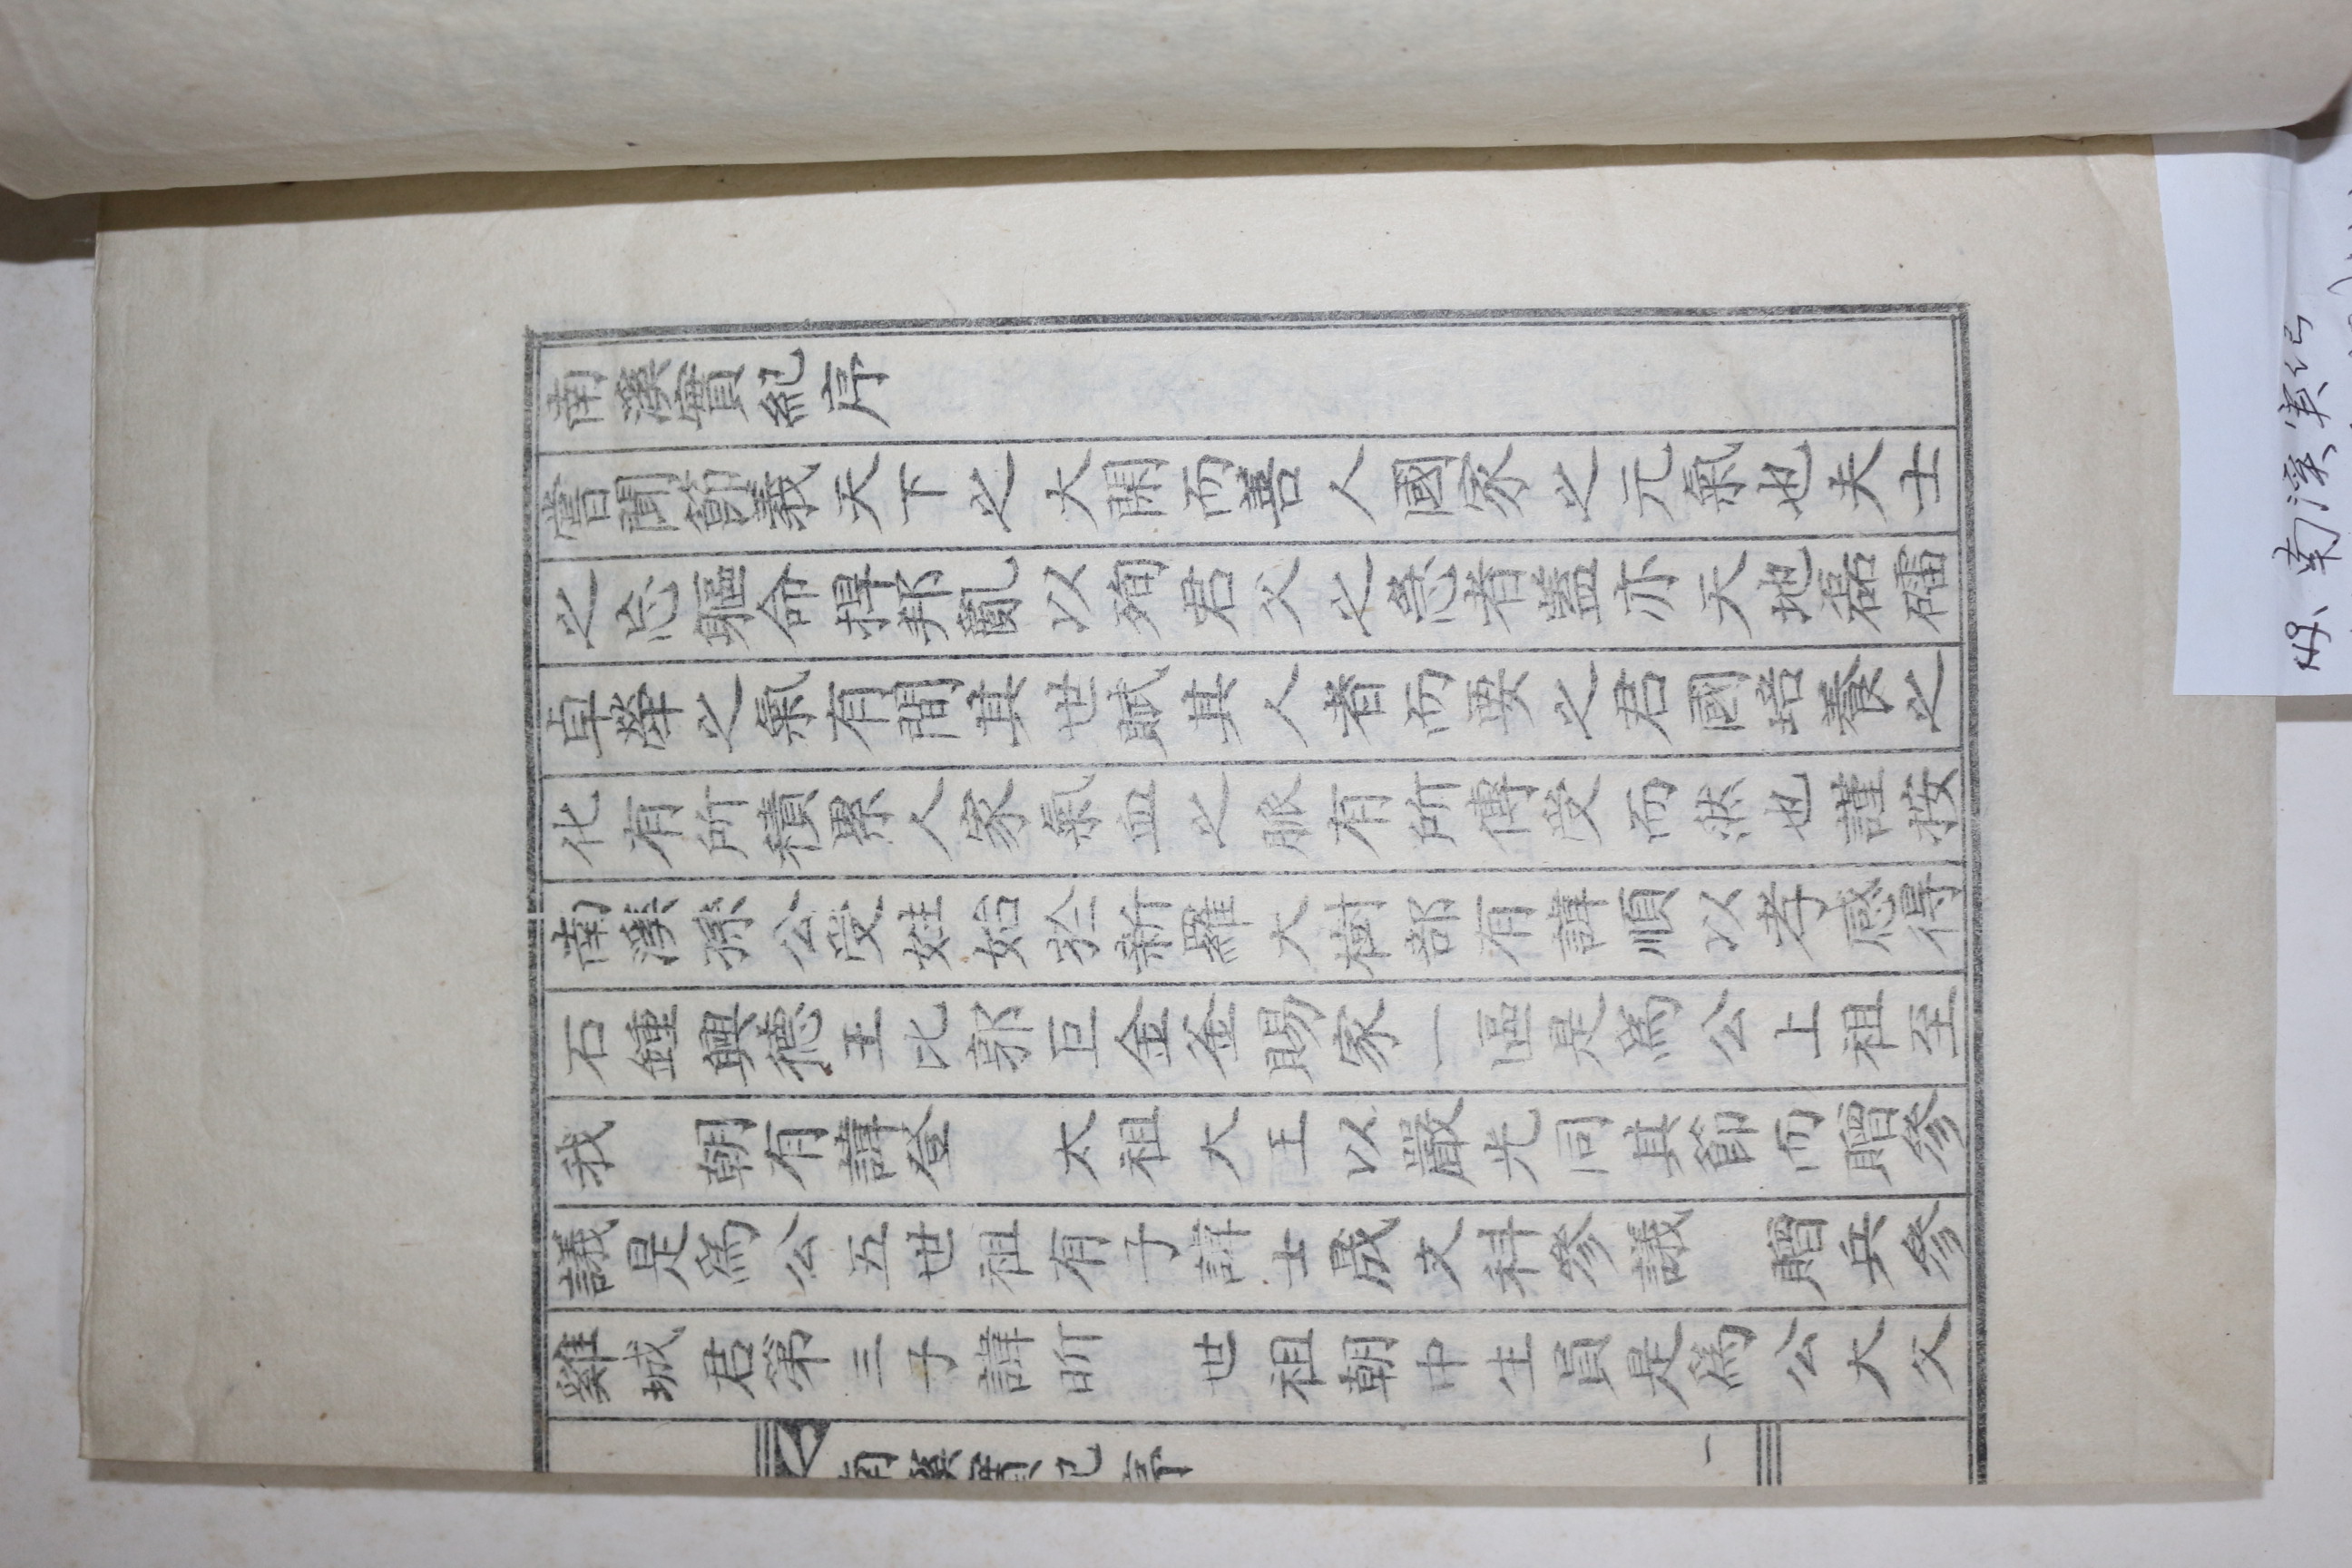 南溪實紀序
嘗聞節義天下之大閑而善人國家之元氣也夫士
之忘軀命捍邦亂以殉君父之急者蓋亦天地磊礌
卓犖之氣有間其世賦其人者而要之君國培養之
化有所積累人家氣血之脈有所傳受而然也謹按
南溪孫公受姓始於新羅大樹部有諱順以孝感得
石鍾興德王比郭巨金釜賜家一區是爲公上祖至
我 朝有諱登 太祖大王以嚴光同其節而贈參
議是爲公五世祖有子諱士晟文科參議 贈兵參
雞城君第三子諱昕 世祖朝中生員是爲公大父
南溪實紀序
一
南溪実紀